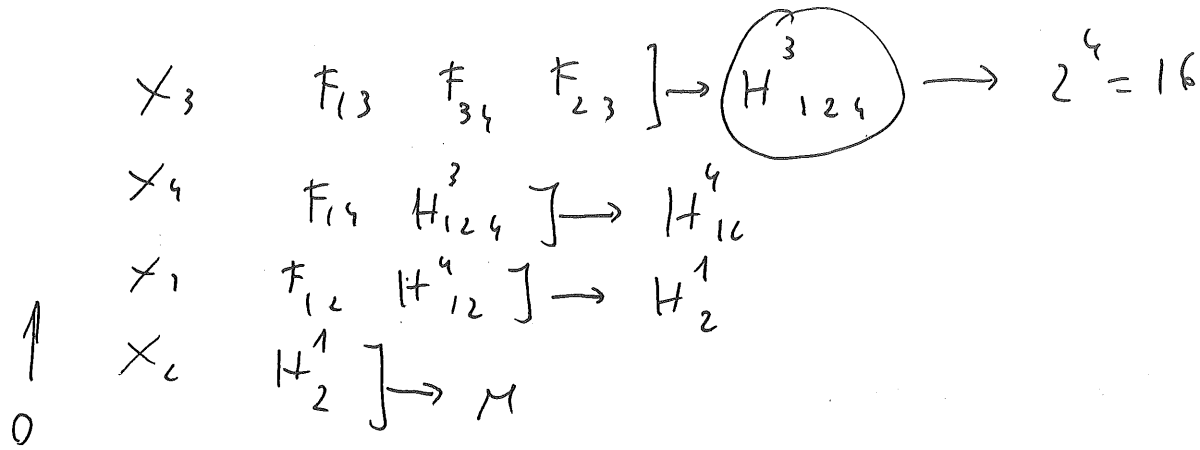 X₃ F₁₃ F₃₄ F₂₃ ] → H³₁₂₄ → 2⁴ = 16
X₄ F₁₄ H³₁₂₄ ] → H⁴₁₂
X₁ F₁₂ H⁴₁₂ ] → H¹₂
X₂ H¹₂ ] → M
↑
O